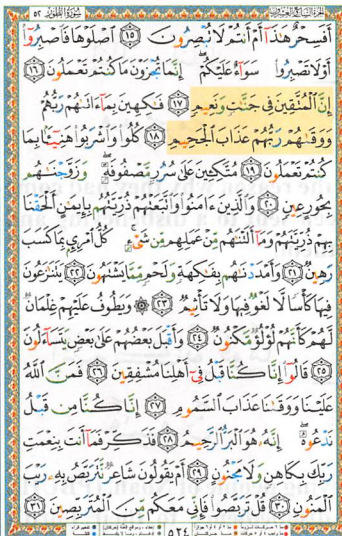 الجزء السابع والعشرون سورة الطور ٥٢
أَفَسِحْرٌ هَٰذَا أَمْ أَنتُمْ لَا تُبْصِرُونَ ١٥ اصْلَوْهَا فَاصْبِرُوا
أَوْ لَا تَصْبِرُوا سَوَاءٌ عَلَيْكُمْ ۖ إِنَّمَا تُجْزَوْنَ مَا كُنتُمْ تَعْمَلُونَ ١٦
إِنَّ الْمُتَّقِينَ فِي جَنَّاتٍ وَنَعِيمٍ ١٧ فَاكِهِينَ بِمَا آتَاهُمْ رَبُّهُمْ
وَوَقَاهُمْ رَبُّهُمْ عَذَابَ الْجَحِيمِ ١٨ كُلُوا وَاشْرَبُوا هَنِيئًا بِمَا
كُنتُمْ تَعْمَلُونَ ١٩ مُتَّكِئِينَ عَلَىٰ سُرُرٍ مَّصْفُوفَةٍ ۖ وَزَوَّجْنَاهُم
بِحُورٍ عِينٍ ٢٠ وَالَّذِينَ آمَنُوا وَاتَّبَعَتْهُمْ ذُرِّيَّتُهُم بِإِيمَانٍ أَلْحَقْنَا
بِهِمْ ذُرِّيَّتَهُمْ وَمَا أَلَتْنَاهُم مِّنْ عَمَلِهِم مِّن شَيْءٍ ۚ كُلُّ امْرِئٍ بِمَا كَسَبَ
رَهِينٌ ٢١ وَأَمْدَدْنَاهُم بِفَاكِهَةٍ وَلَحْمٍ مِّمَّا يَشْتَهُونَ ٢٢ يَتَنَازَعُونَ
فِيهَا كَأْسًا لَّا لَغْوٌ فِيهَا وَلَا تَأْثِيمٌ ٢٣ ۞ وَيَطُوفُ عَلَيْهِمْ غِلْمَانٌ
لَّهُمْ كَأَنَّهُمْ لُؤْلُؤٌ مَّكْنُونٌ ٢٤ وَأَقْبَلَ بَعْضُهُمْ عَلَىٰ بَعْضٍ يَتَسَاءَلُونَ
٢٥ قَالُوا إِنَّا كُنَّا قَبْلُ فِي أَهْلِنَا مُشْفِقِينَ ٢٦ فَمَنَّ اللَّهُ
عَلَيْنَا وَوَقَانَا عَذَابَ السَّمُومِ ٢٧ إِنَّا كُنَّا مِن قَبْلُ
نَدْعُوهُ ۖ إِنَّهُ هُوَ الْبَرُّ الرَّحِيمُ ٢٨ فَذَكِّرْ فَمَا أَنتَ بِنِعْمَتِ
رَبِّكَ بِكَاهِنٍ وَلَا مَجْنُونٍ ٢٩ أَمْ يَقُولُونَ شَاعِرٌ نَّتَرَبَّصُ بِهِ رَيْبَ
الْمَنُونِ ٣٠ قُلْ تَرَبَّصُوا فَإِنِّي مَعَكُم مِّنَ الْمُتَرَبِّصِينَ ٣١
٥٢٤